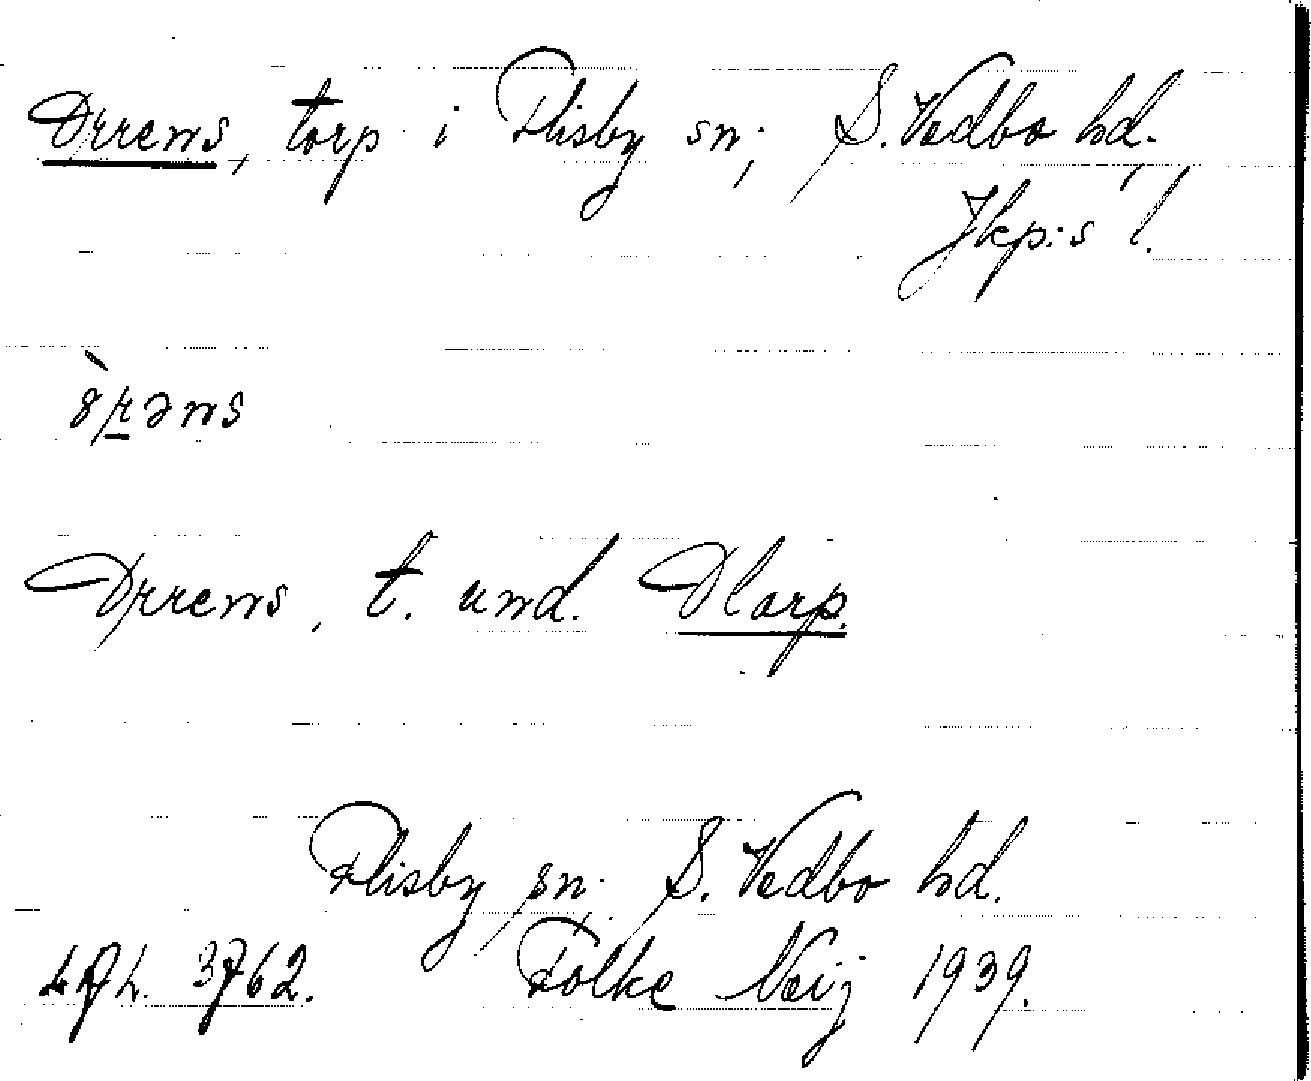 Orrens, torp i Flisby sn; S. Vedbo hd.
Jkp:s l.
Orrens, t. und. Olarp.
Flisby sn; S. Vedbo hd.
3762. Folke Neij 1939.